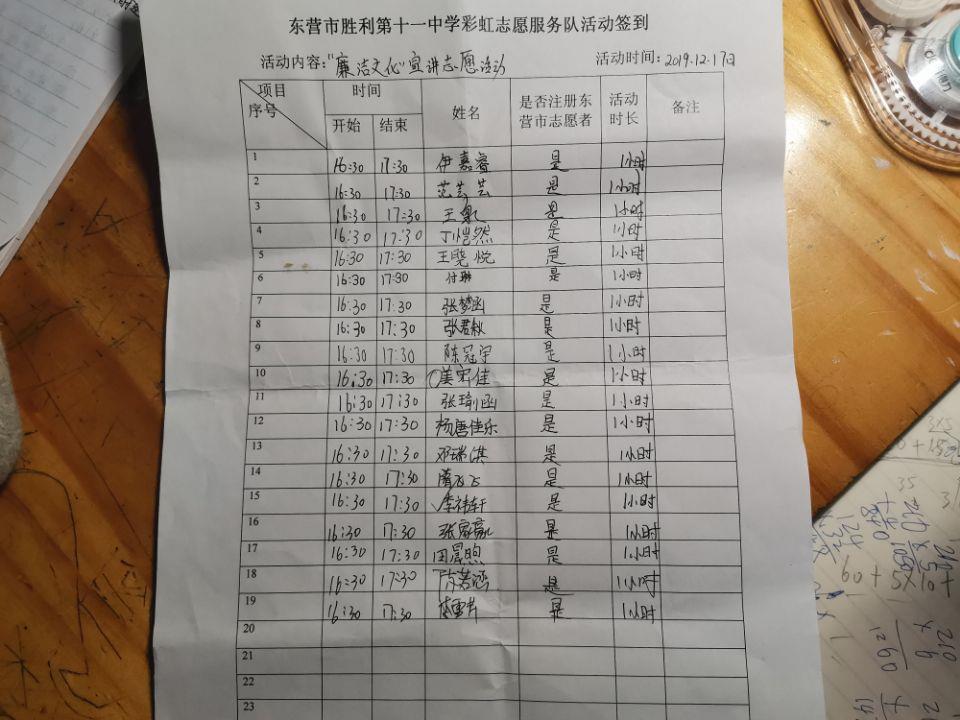 东营市胜利第十一中学彩虹志愿服务队活动签到
活动内容:"廉洁文化"宣讲志愿活动 活动时间:2019.12.17日
项目 时间 姓名 是否注册东营市志愿者 活动时长 备注
序号 开始 结束
1 16:30 17:30 伊嘉睿 是 1小时
2 16:30 17:30 范芸芸 是 1小时
3 16:30 17:30 王 是 1小时
4 16:30 17:30 丁恺然 是 1小时
5 16:30 17:30 王晓悦 是 1小时
6 16:30 17:30 付琳 是 1小时
7 16:30 17:30 张梦函 是 1小时
8 16:30 17:30 张君秋 是 1小时
9 16:30 17:30 陈冠宇 是 1小时
10 16:30 17:30 姜宋佳 是 1小时
11 16:30 17:30 张瑜函 是 1小时
12 16:30 17:30 杨唐佳乐 是 1小时
13 16:30 17:30 邓瑞淇 是 1小时
14 16:30 17:30 飞飞 是 1小时
15 16:30 17:30 李祎轩 是 1小时
16 16:30 17:30 张家豪 是 1小时
17 16:30 17:30 田晨煦 是 1小时
18 16:30 17:30 陈若涵 是 1小时
19 16:30 17:30 是 1小时
20
21
22
23